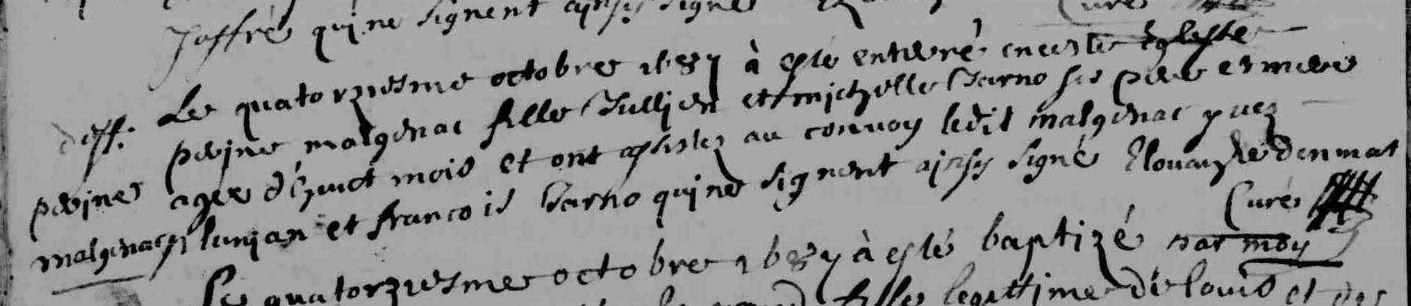 Jaffré qui ne signent ainsy signé
Curé
deff. Le quatorziesme octobre 1687 à esté enterré en ceste Eglisse
perine malgenac fille Jullien et michelle Jarno ses pere et mere
perine agee dhuict mois et ont assistez au convoy ledit malgenac yuez
malgenac lunjan et francois Jarno qui ne signent ainsy signé
Curé
Le quatorziesme octobre 1687 à esté baptizé par moy
fille legittime de louis et de